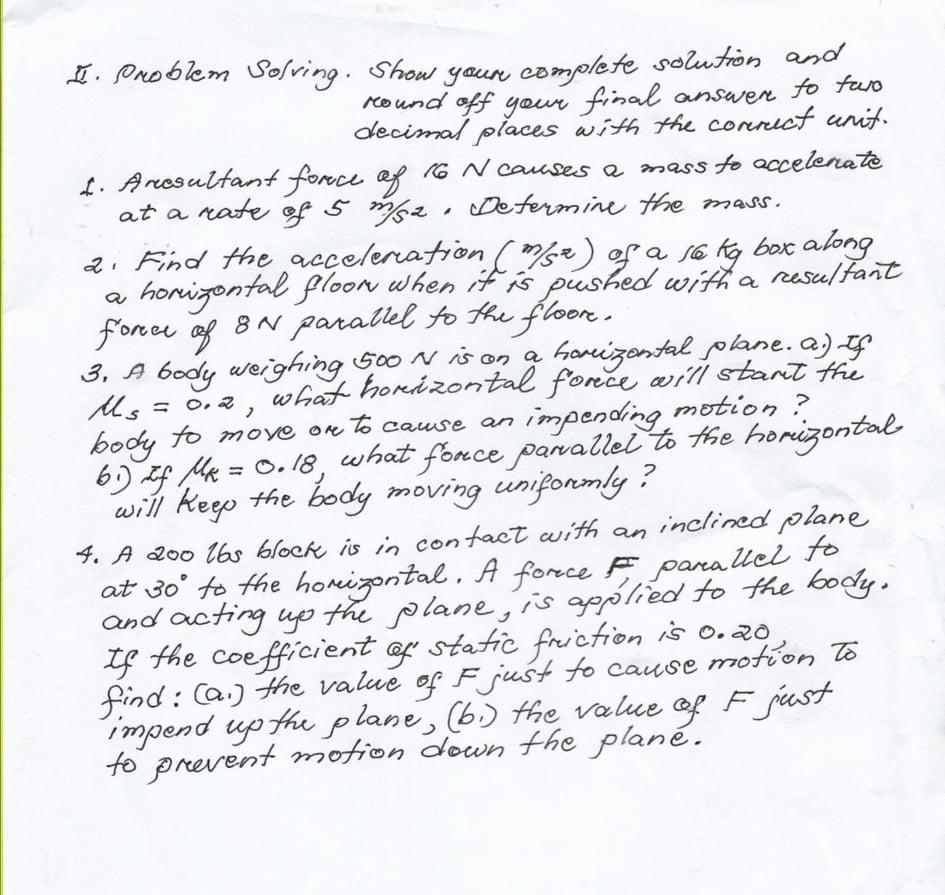 II. Problem Solving. Show your complete solution and
round off your final answer to two
decimal places with the correct unit.
1. A resultant force of 16 N causes a mass to accelerate
at a rate of 5 m/s2. Determine the mass.
2. Find the acceleration (m/s2) of a 16 kg box along
a horizontal floor when it is pushed with a resultant
force of 8 N parallel to the floor.
3. A body weighing 500 N is on a horizontal plane. a.) If
Ms = 0.2, what horizontal force will start the
body to move or to cause an impending motion?
b.) If MK = 0.18, what force parallel to the horizontal
will keep the body moving uniformly?
4. A 200 lbs block is in contact with an inclined plane
at 30° to the horizontal. A force F, parallel to
and acting up the plane, is applied to the body.
If the coefficient of static friction is 0.20,
find: (a.) the value of F just to cause motion to
impend up the plane, (b.) the value of F just
to prevent motion down the plane.